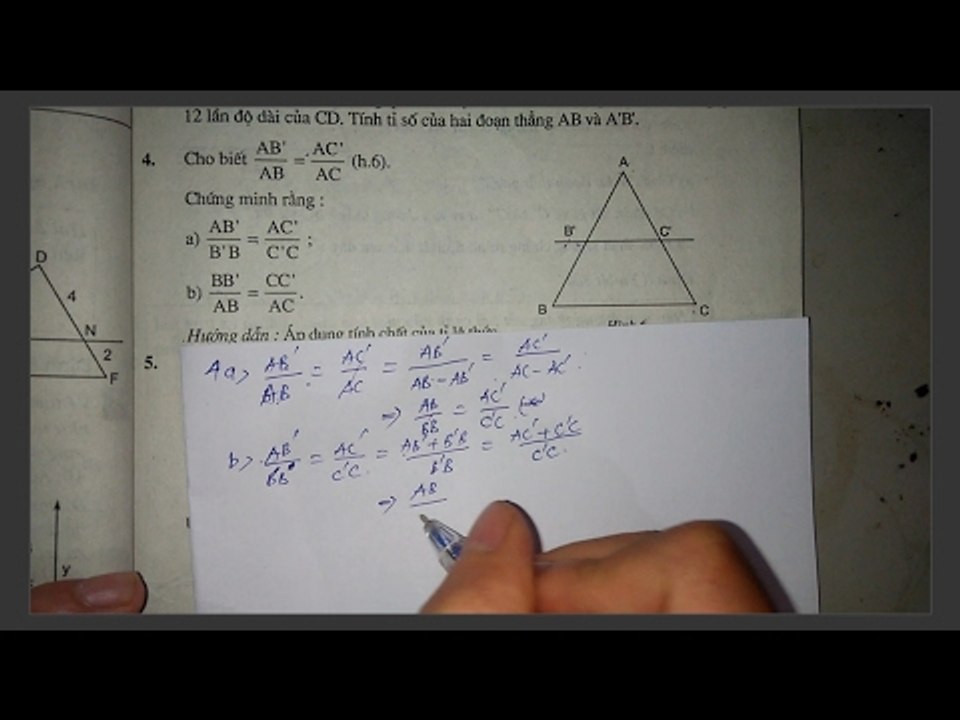 12 lần độ dài của CD. Tính tỉ số của hai đoạn thẳng AB và A'B'.
4. Cho biết AB'/AB = AC'/AC (h.6).
Chứng minh rằng :
a) AB'/B'B = AC'/C'C ;
b) BB'/AB = CC'/AC .
Hướng dẫn : Áp dụng tính chất của tỉ lệ thức
5.
A
B' C'
B C
Hình 6
D
4
N
2
F
y
4a> AB'/AB = AC'/AC = AB'/AB-AB' = AC'/AC-AC'
=> AB/BB = AC'/C'C
b> AB'/BB' = AC'/C'C = AB'+B'B/B'B = AC'+C'C/C'C
=> AB